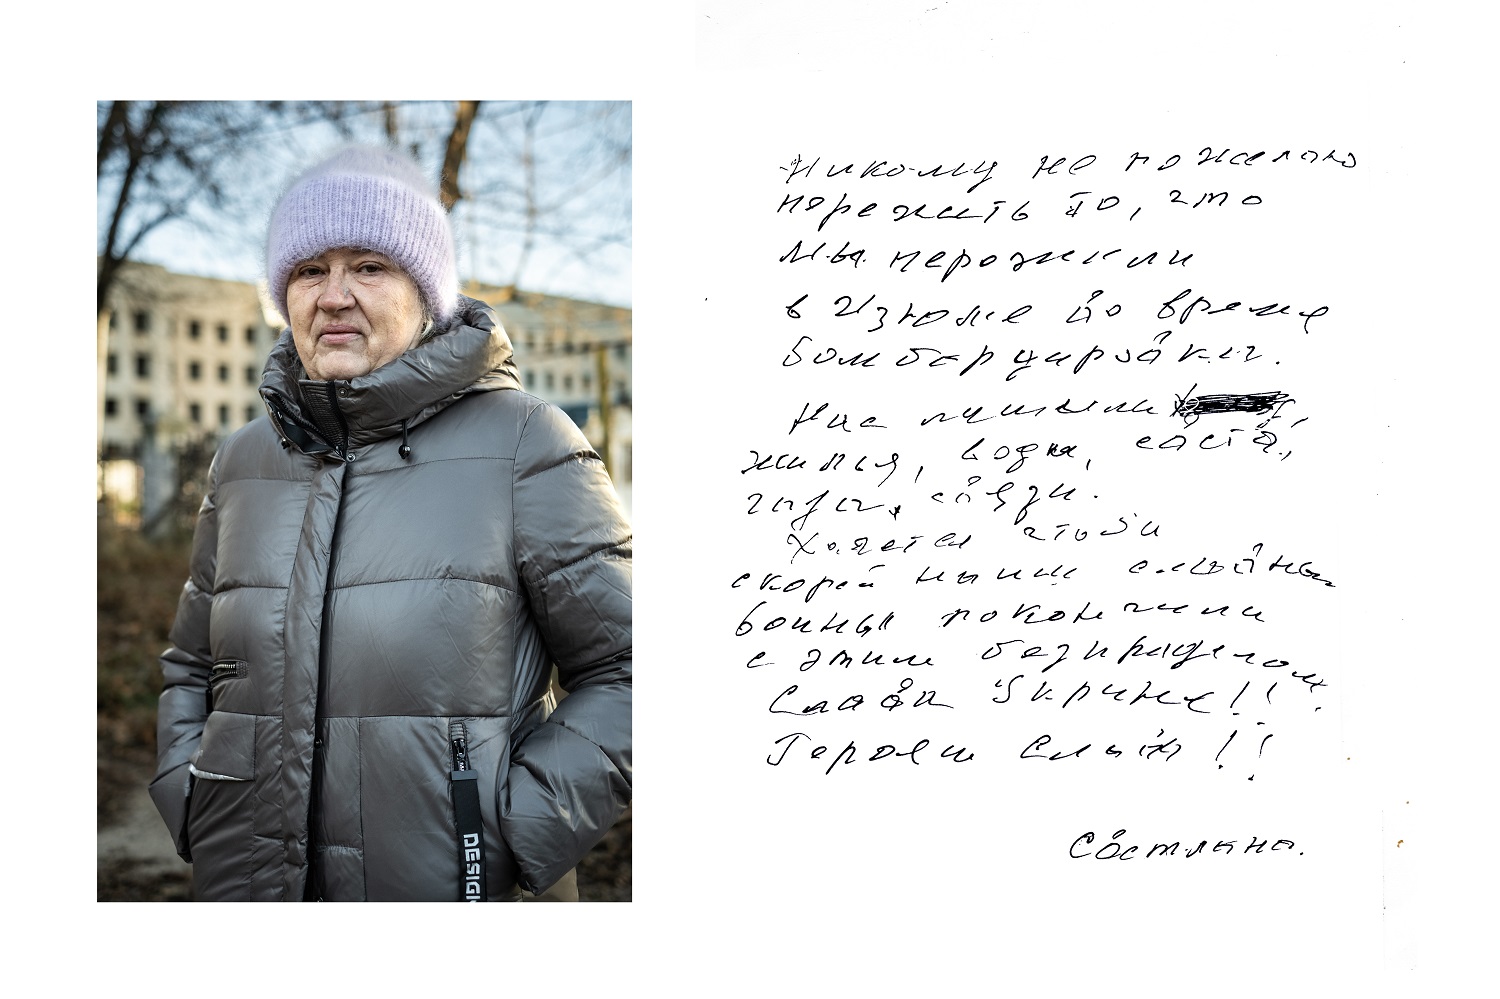 DESIGN
Никому не пожелаю
пережить то, что
мы пережили
в Изюме во время
бомбардировки.
Нас лишили
жилья, воды, света,
газа, связи.
Хочется чтобы
скорей наши славные
воины покончили
с этим безпределом.
Слава Украине!!
Героям Слава!!
Светлана.